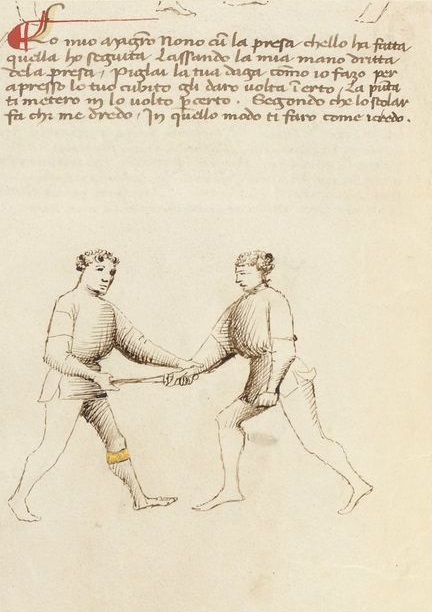 Lo mio magro Nono cũ la presa chello ha fatta
quella ho seguita Lassando la mia mano dritta
dela presa, Piglai la tua daga como io fazo per
apresso lo tuo cubito gli daro volta Certo, La pũta
ti metero in lo volto p certo. Segondo che lo scolar
fa chi me dredo, In quello modo ti faro come credo.